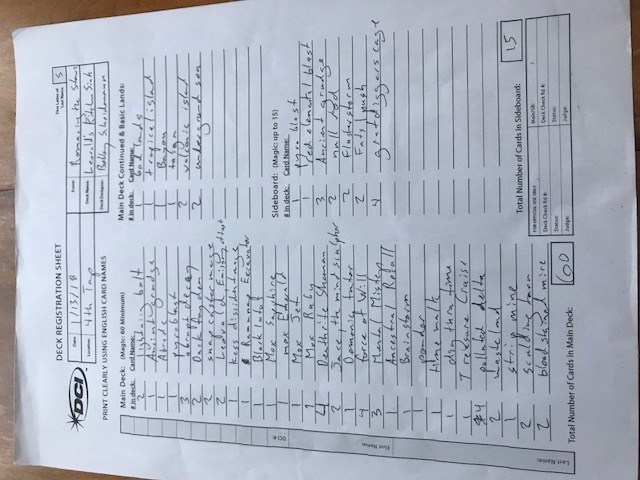 DECK REGISTRATION SHEET
First Letter of Last Name: S
DCI
Date: 1/13/18
Event: Romancing the Stones
Location: 4th Tap
Deck Name: Leovold's Kitchen Sink
Deck Designer: Bobby Scheidemann
PRINT CLEARLY USING ENGLISH CARD NAMES
Main Deck: (Magic: 60 Minimum)
# in deck: Card Name:
2 lightning bolt
1 Ancient grudge
1 Abrade
1 pyroblast
3 abrupt decay
2 Dack fayden
2 snap caster mage
2 Leovold Emissary of trest
1 Kess dissident mage
1 Ramunap Excavator
1 Black lotus
1 Mox Sapphire
1 mox Emerald
1 Mox Jet
1 Mox Ruby
4 Deathrite Shaman
2 Jace, the mind sculptor
1 Demonic tutor
4 force of Will
3 Mental Mistep
1 Ancestral Recall
1 Brainstorm
1 ponder
1 time walk
1 dig thru time
1 Treasure Cruise
4 polluted delta
2 wasteland
1 strip mine
2 scalding tarn
2 blood stained mire
Total Number of Cards in Main Deck: 60
Main Deck Continued & Basic Lands:
# in deck: Card Name:
1 badlands
1 tropical island
1 Bayou
1 taiga
2 volcanic island
2 underground sea
Sideboard: (Magic: up to 15)
# in deck: Card Name:
1 pyro blast
1 red elemental blast
3 Ancient grudge
2 null rod
2 Flusterstorm
2 Fatal push
4 grafdiggers cage
Total Number of Cards in Sideboard: 15
FOR OFFICIAL USE ONLY
Main/SB: /
Deck Check Rd #:
Deck Check Rd #:
Status:
Status:
Judge:
Judge:
DCI #:
First Name:
Last Name: